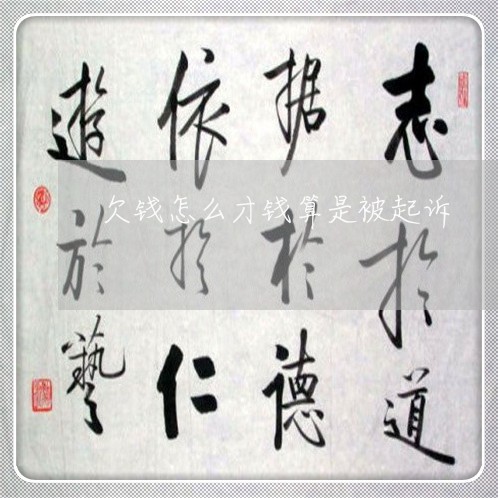 志於道
据於德
依於仁
遊於藝
欠钱怎么才钱算是被起诉